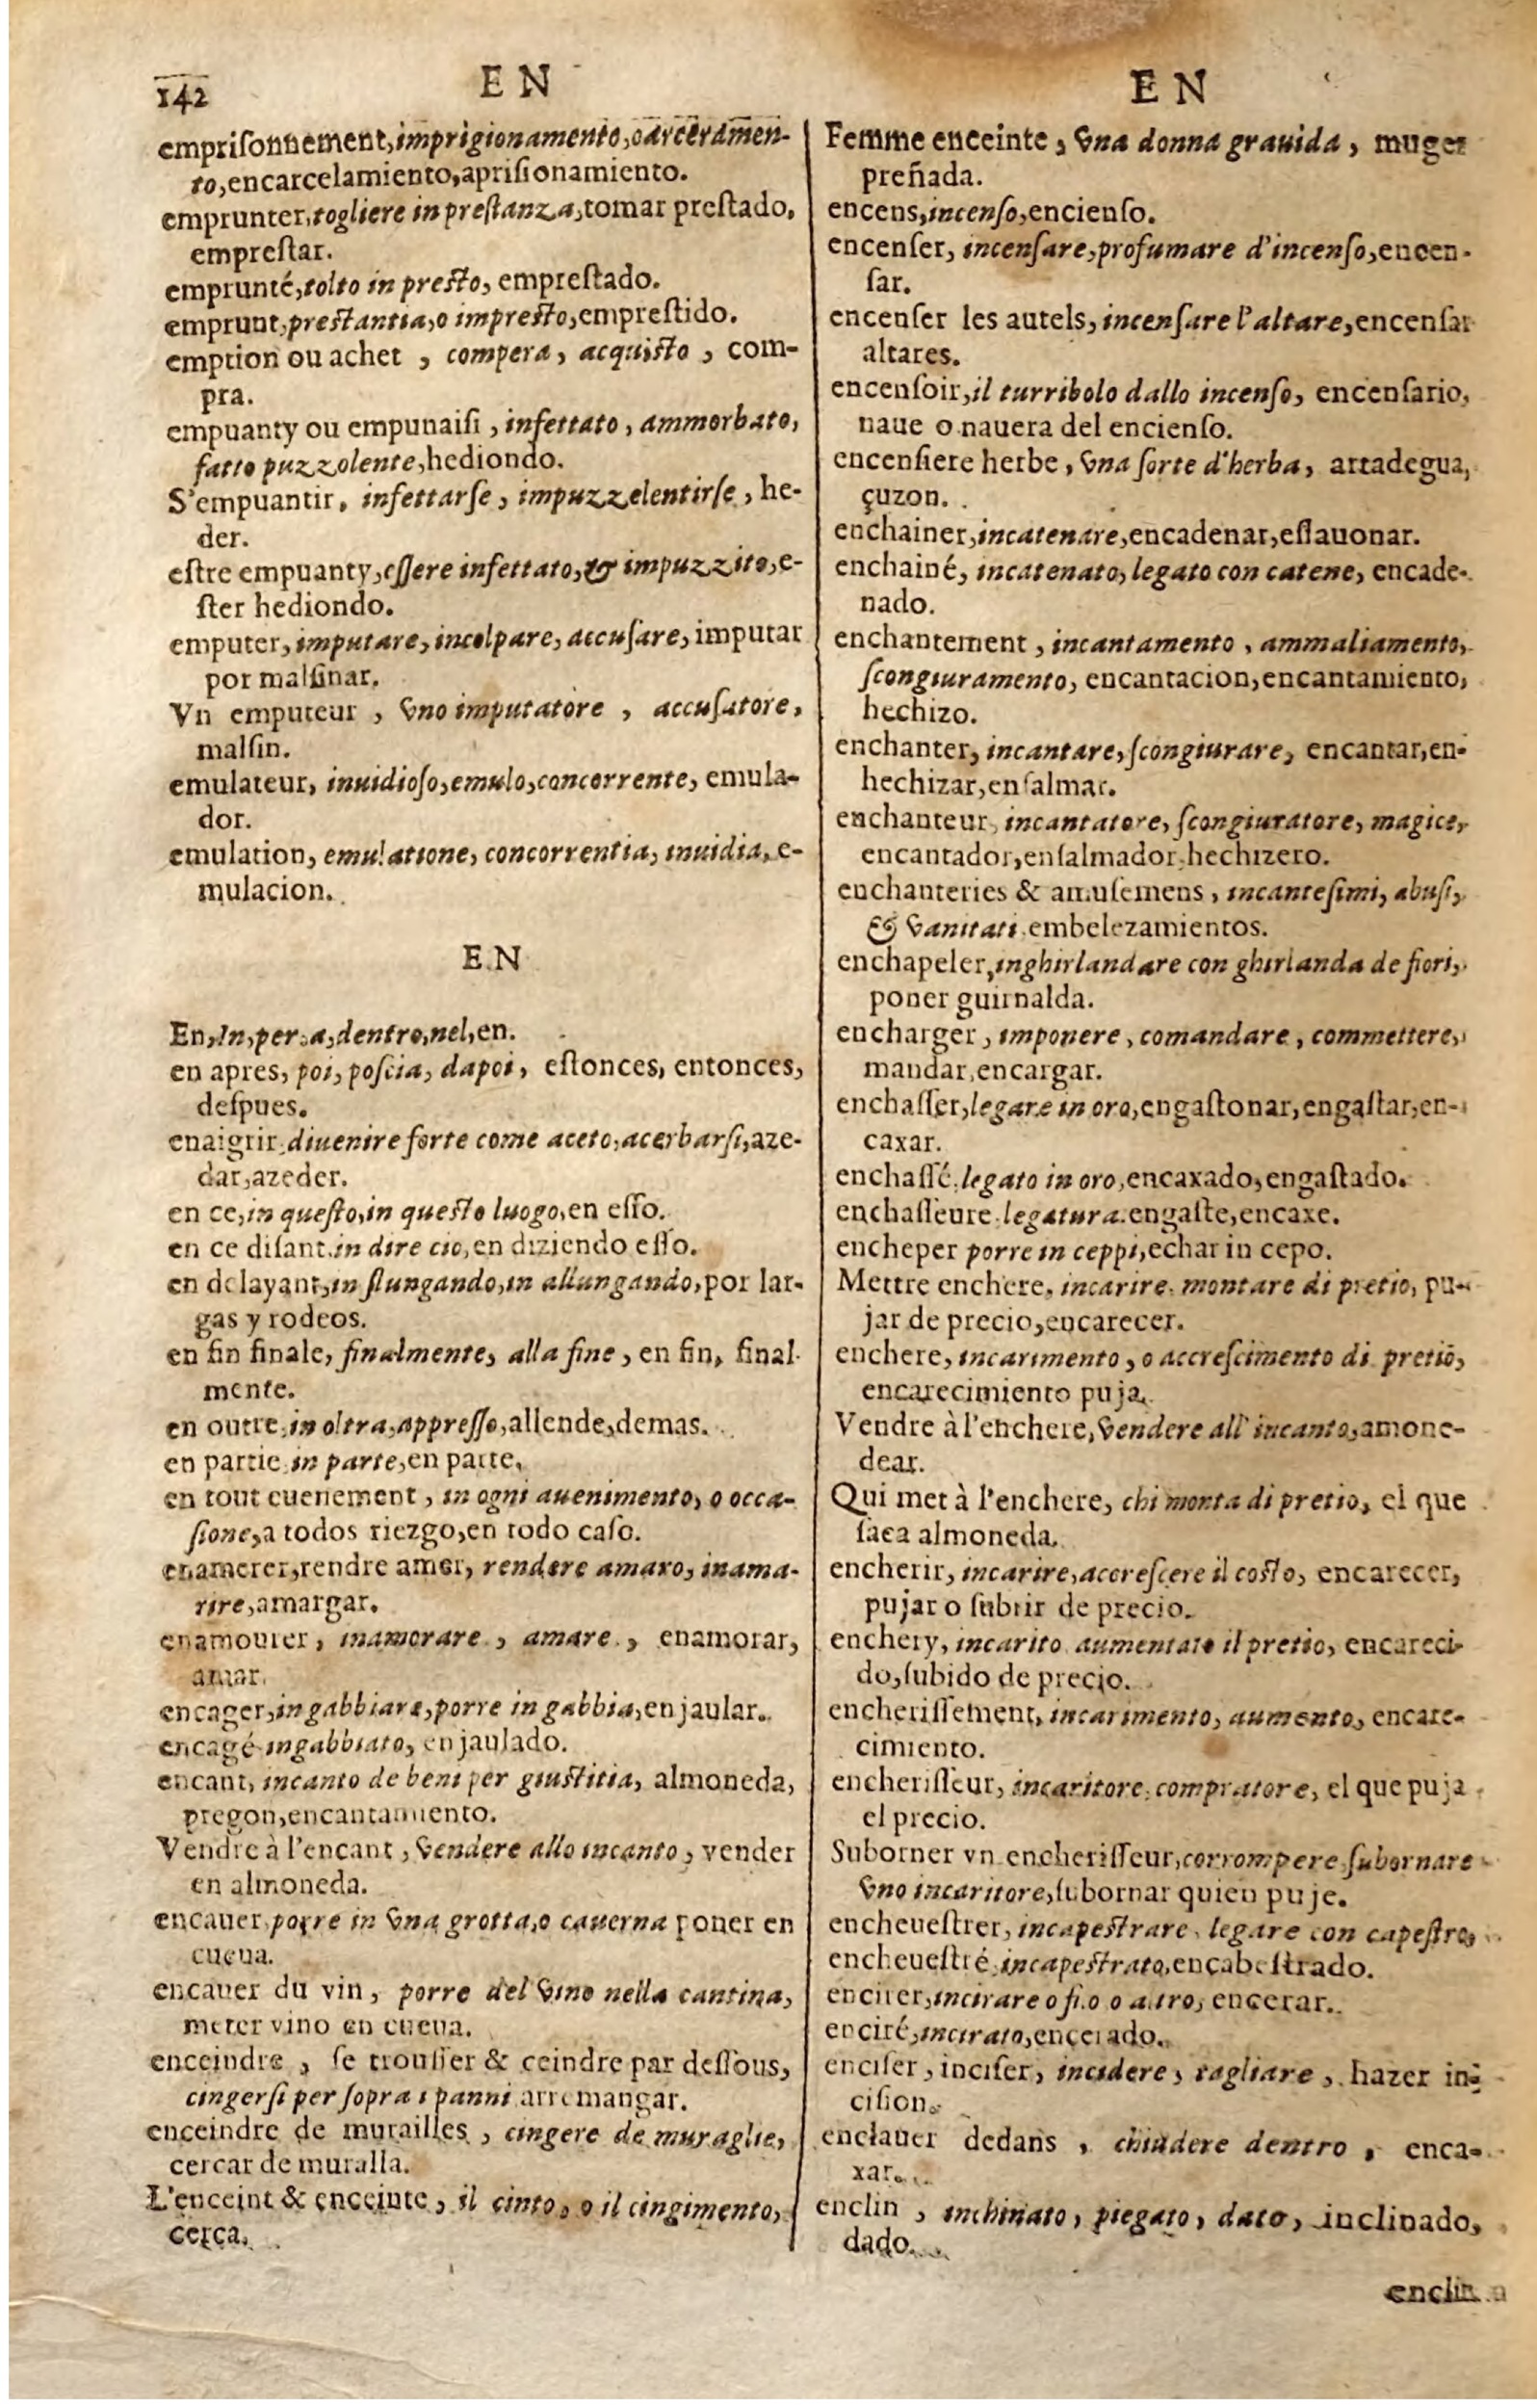 142
EN
EN
empriſonnement, imprigionamento, o carceramen-
to, encarcelamiento, apriſionamiento.
emprunter, togliere in preſtanza, tomar preſtado,
empreſtar.
emprunté, tolto in preſto, empreſtado.
emprunt, preſtantia, o impreſto, empreſtido.
emption ou achet, compera, acquiſto, com-
pra.
empuanty ou empunaiſi, infettato, ammorbato,
fatto puzzolente, hediondo.
S'empuantir, infettarſe, impuzzelentirſe, he-
der.
eſtre empuanty, eſſere infettato, & impuzzito, e-
ſter hediondo.
emputer, imputare, incolpare, accuſare, imputar
por malſinar.
Vn emputeur, vno imputatore, accuſatore,
malſin.
emulateur, inuidioſo, emulo, concorrente, emula-
dor.
emulation, emulatione, concorrentia, inuidia, e-
mulacion.
EN
En, In, per, a, dentro, nel, en.
en apres, poi, poſcia, dapoi, eſtonces, entonces,
deſpues.
enaigrir, diuenire forte come aceto, acerbarſi, aze-
dar, azeder.
en ce, in queſto, in queſto luogo, en eſſo.
en ce diſant, in dire cio, en diziendo eſſo.
en delayant, in ſlungando, in allungando, por lar-
gas y rodeos.
en fin finale, finalmente, alla fine, en fin, final-
mente.
en outre, in oltra, appreſſo, allende, demas.
en partie, in parte, en parte.
en tout euenement, in ogni auenimento, o occa-
ſione, a todos riezgo, en todo caſo.
enamerer, rendre amer, rendere amaro, inama-
rire, amargar.
enamourer, inamorare, amare, enamorar,
amar.
encager, ingabbiare, porre in gabbia, enjaular.
encagé ingabbiato, enjaulado.
encant, incanto de beni per giuſtitia, almoneda,
pregon, encantamiento.
Vendre à l'encant, vendere allo incanto, vender
en almoneda.
encauer, porre in vna grotta, o cauerna poner en
cueua.
encauer du vin, porre del vino nella cantina,
meter vino en cueua.
enceindre, ſe trouſſer & ceindre par deſſous,
cingerſi per ſopra i panni arremangar.
enceindre de murailles, cingere de muraglie,
cercar de muralla.
L'enceint & enceinte, il cinto, o il cingimento,
cerca.
Femme enceinte, vna donna grauida, muger
preñada.
encens, incenſo, encienſo.
encenſer, incenſare, profumare d'incenſo, encen-
ſar.
encenſer les autels, incenſare l'altare, encenſar
altares.
encenſoir, il turribolo dallo incenſo, encenſario,
naue o nauera del encienſo.
encenſiere herbe, vna ſorte d'herba, arradegua,
çuzon.
enchainer, incatenare, encadenar, eſlauonar.
enchainé, incatenato, legato con catene, encade-
nado.
enchantement, incantamento, ammaliamento,
ſcongiuramento, encantacion, encantamiento,
hechizo.
enchanter, incantare, ſcongiurare, encantar, en-
hechizar, enſalmar.
enchanteur, incantatore, ſcongiuratore, magice,
encantador, enſalmador, hechizero.
enchanteries & amuſemens, incanteſimi, abuſi,
& vanitati embelezamientos.
enchapeler, inghirlandare con ghirlanda de fiori,
poner guirnalda.
encharger, imponere, comandare, commettere,
mandar, encargar.
enchaſſer, legare in oro, engaſtonar, engaſtar, en-
caxar.
enchaſſé, legato in oro, encaxado, engaſtado.
enchaſſeure legatura. engaſte, encaxe.
encheper porre in ceppi, echar in cepo.
Mettre enchere, incarire, montare di pretio, pu-
jar de precio, encarecer.
enchere, incarimento, o accreſcimento di pretio,
encarecimiento puja.
Vendre à l'enchere, vendere all'incanto, amone-
dear.
Qui met à l'enchere, chi monta di pretio, el que
ſaca almoneda.
encherir, incarire, accreſcere il coſto, encarecer,
pujar o ſubrir de precio.
enchery, incarito aumentato il pretio, encareci-
do, ſubido de precio.
encheriſſement, incarimento, aumento, encare-
cimiento.
encheriſſeur, incaritore, compratore, el que puja
el precio.
Suborner vn encheriſſeur, corrompere, ſubornare
vno incaritore, ſubornar quien puje.
encheueſtrer, incapeſtrare, legare con capeſtro,
encheueſtré, incapeſtrato, encabeſtrado.
encirer, incirare o filo o altro, encerar.
enciré, incirato, encerado.
enciſer, inciſer, incidere, tagliare, hazer in-
ciſion.
enclauer dedans, chiudere dentro, enca-
xar.
enclin, inchinato, piegato, dato, inclinado,
dado.
enclin